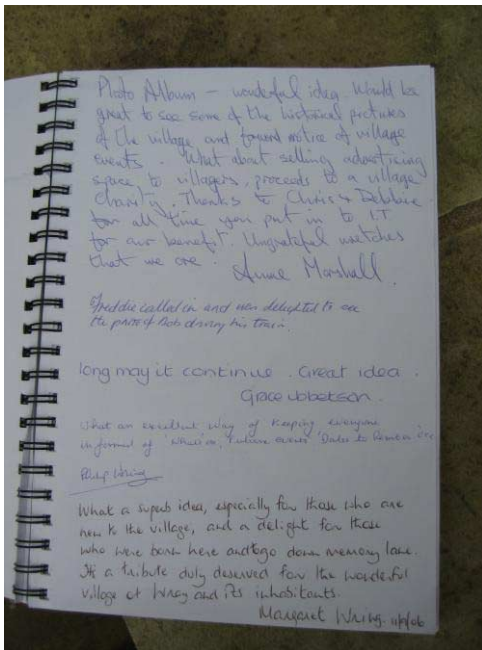 Photo Album - wonderful idea. Would be
great to see some of the historical pictures
of the village and forward notice of village
events. What about selling advertising
space to villagers, proceeds to a village
charity. Thanks to Chris & Debbie
for all time you put in to I.T
for our benefit. Ungrateful wretches
that we are. Anne Marshall.
Freddie called in and was delighted to see
the photo of Bob driving his train.
long may it continue. Great idea.
Grace Ibbetson.
What an excellent way of keeping everyone
informed of 'What's on', Future events 'Dates to Remember' etc
Philip Wring
What a superb idea, especially for those who are
new to the village, and a delight for those
who were born here and to go down memory lane.
It's a tribute duly deserved for the wonderful
village of Wray and its inhabitants.
Margaret Wring.